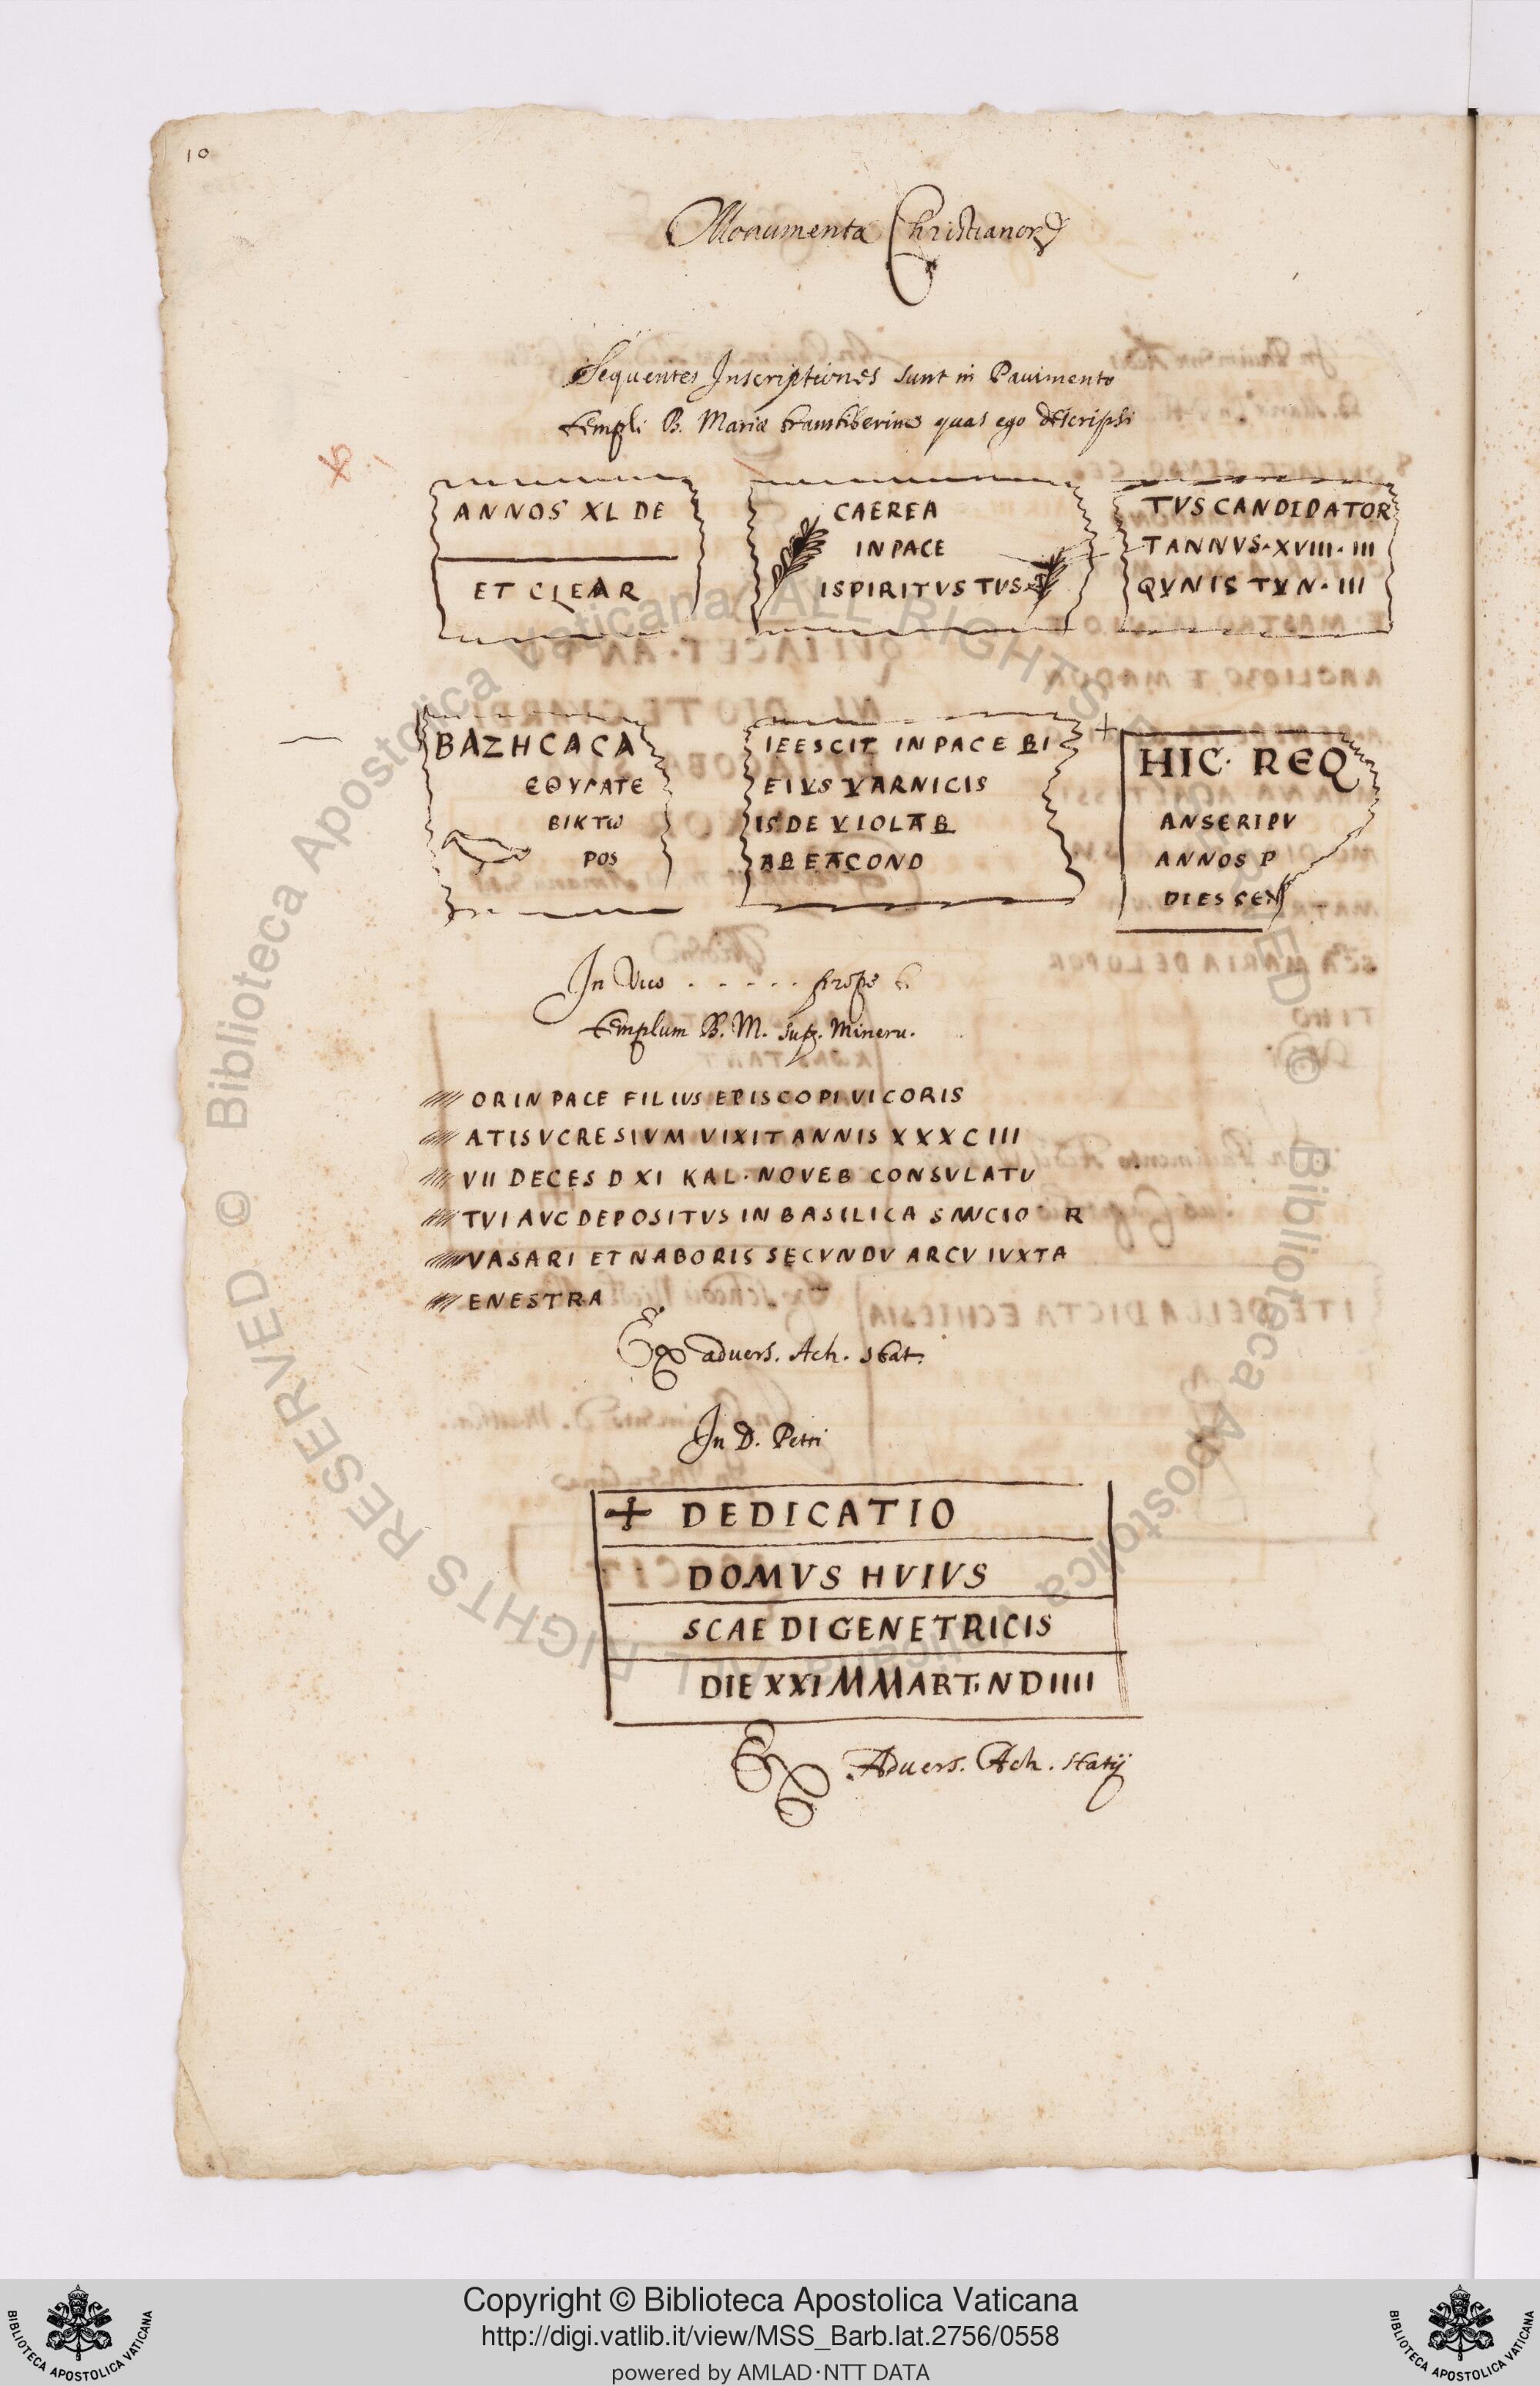 10
Monumenta Christianor
Sequentes Inscriptiones sunt in Pavimento
templi B. Mariæ transtiberinæ quas ego descripsi
ANNOS XL DE
ET CLEAR
CAEREA
IN PACE
ISPIRITVS TVS
TVS CANDIDATOR
T ANNVS·XVIII·III
QVNIS TVN·III
BAZHCACA
ЄΘΥΓΑΤΕ
ΒΙΚΤω
ΡΟS
IEESCIT IN PACE BI
EIVS VARNICIS
IS DE VIOLAB
ABEACOND
HIC· REQ
ANSERIPV
ANNOS P
DIES CEN
In Vico . . . . . prope
templum B. M. sup. Mineru.
ORIN PACE FILIVS EPISCOPI VICORIS
ATIS VCRESIVM VIXIT ANNIS XXXCIII
VII DECES D XI KAL· NOVEB CONSVLATV
TVI AVC DEPOSITVS IN BASILICA SANCIO R
VASARI ET NABORIS SECVNDV ARCV IVXTA
ENESTRA
Ex advers. Ach. stat.
In D. Petri
+ DEDICATIO
DOMVS HVIVS
SCAE DI GENETRICIS
DIE XXI M MART· N D IIII
Ex Advers. Ach. statij
Copyright © Biblioteca Apostolica Vaticana
http://digi.vatlib.it/view/MSS_Barb.lat.2756/0558
powered by AMLAD·NTT DATA
BIBLIOTECA APOSTOLICA VATICANA
BIBLIOTECA APOSTOLICA VATICANA